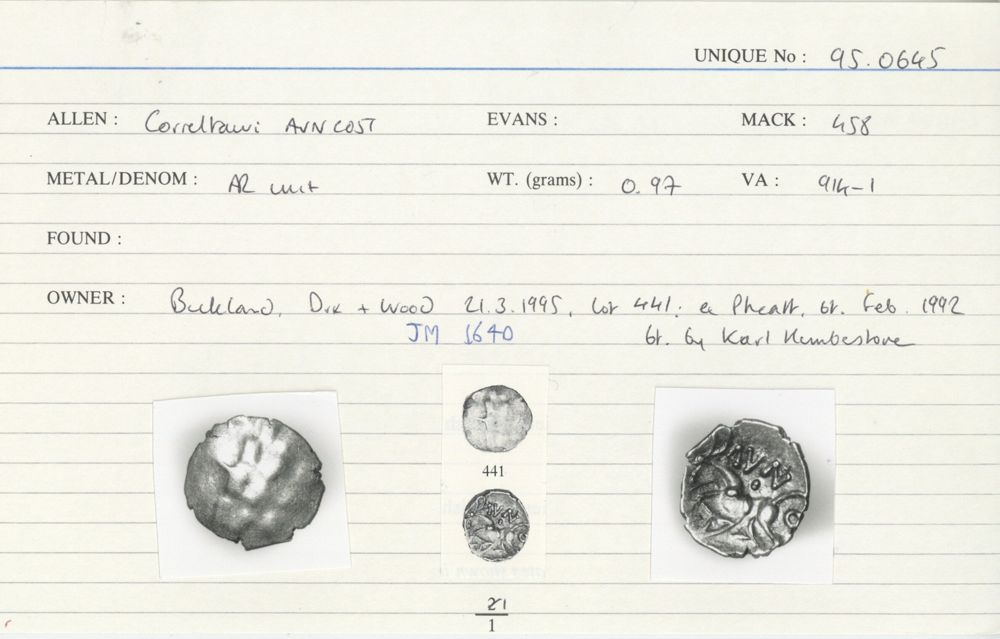 UNIQUE No : 95.0645
ALLEN : Correltauvi AVN COST EVANS : MACK : 458
METAL/DENOM : AR unit WT. (grams) : 0.97 VA : 914-1
FOUND :
OWNER : Buckland, Dix + Wood 21.3.1995, lot 441; ex Pheatt, bt. Feb. 1992
JM 1640 bt. by Karl
441
AVN
21
1